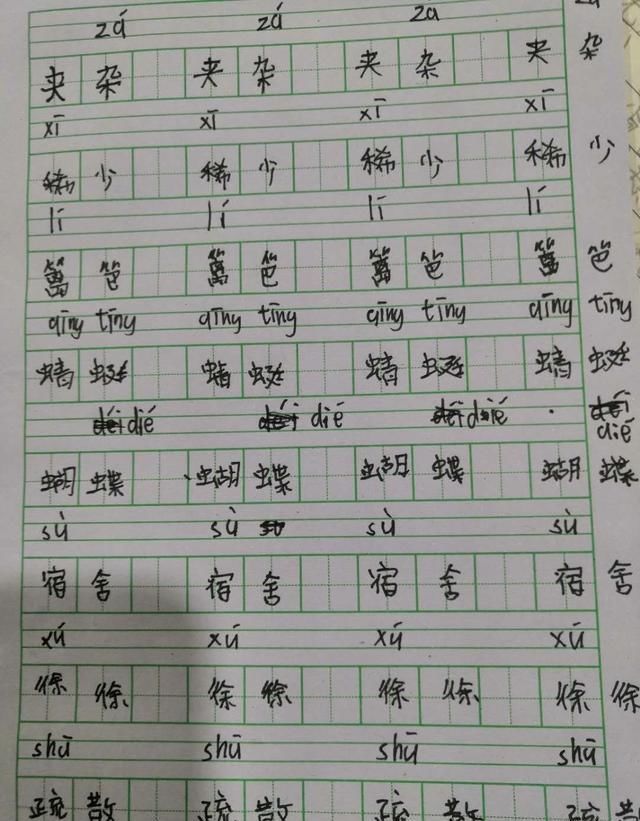 zá zá za zá
夹杂 夹杂 夹杂 夹杂
xī xī xī xī
稀少 稀少 稀少 稀少
lí lí lí lí
篱笆 篱笆 篱笆 篱笆
qīng tíng qīng tíng qīng tíng qīng tíng
蜻蜓 蜻蜓 蜻蜓 蜻蜓
dié dié dié dié
蝴蝶 蝴蝶 蝴蝶 蝴蝶
sù sù sù sù
宿舍 宿舍 宿舍 宿舍
xú xú xú xú
徐徐 徐徐 徐徐 徐徐
shū shū shū shū
疏散 疏散 疏散 疏散